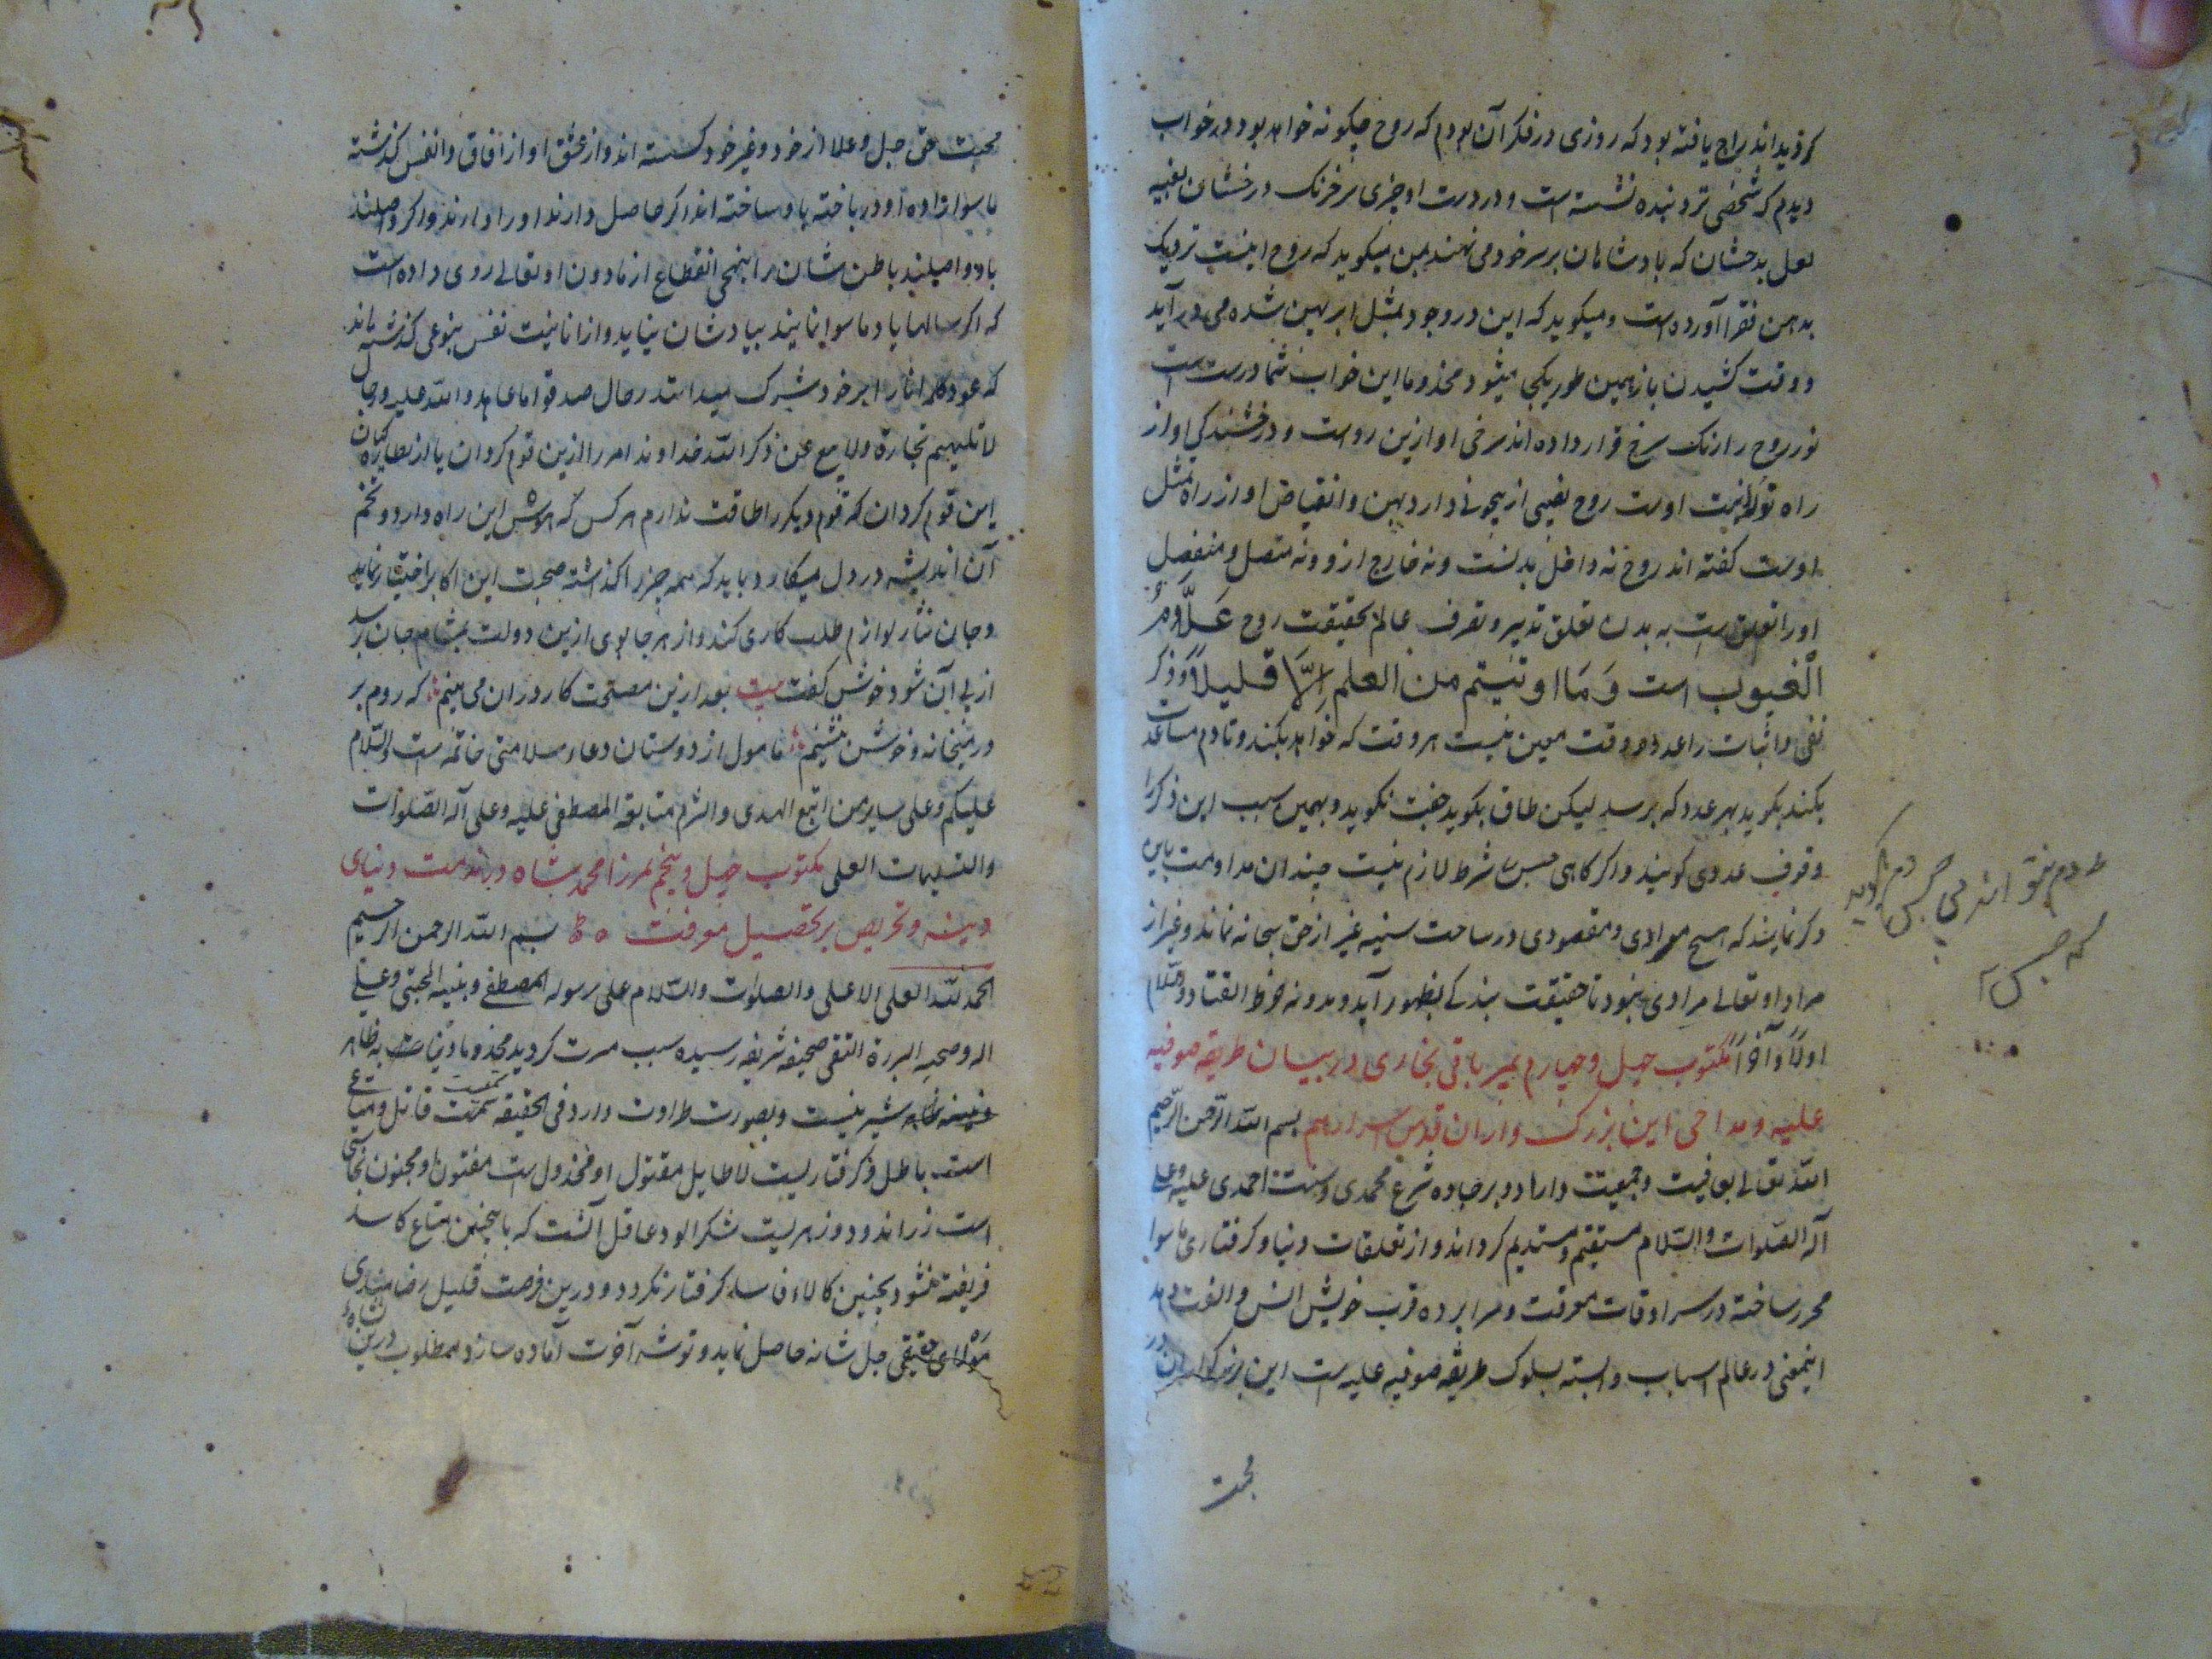 کردید اندراج یافته بود که روزی در فکر آن بودم که روح چکونه خواهد بود در خواب
دیدم که شخصی نزد بنده نشسته است و در دست او چیزی سرخ رنک درخشان بعینه
لعل بدخشان که بادشاهان بر سر خود می نهند بمن میکوید که روح اینست نزدیک
بدهن فقرا آورده است و میکوید که این در وجود بمثل ابر پهن شده می در آید
و وقت کشیدن باز همین طور یکجا میشود مخدوما این خواب شما درست است
نور روح را رنک سرخ قرار داده اند سرخی او ازین روست و درخشندکی او از
راه نورانیت اوست روح نصیبی از بیچونی دارد پهن و انقباض او از راه تمثل
اوست کفته اند روح نه داخل بدنست و نه خارج ازو و نه متصل و منفصل
او را تعلق است به بدن تعلق تدبیر و تصرف عالم بحقیقت روح عَلَّامُ
الْغیوب است وَمَا اوتیتم من العلم اِلَّا قلیلاً و ذکر
نفی و اثبات را عدد و وقت معین نیست هر وقت که خواهد بکند و تا دم مساعدت
بکند بکوید بهر عدد که برسد لیکن طاق بکوید جفت نکوید و بهمین سبب این ذکر را
وقوف عددی کویند و اکر کاهی حبس شرط لازم نیست چندان مداومت باین
ذکر نمایند که هیچ مرادی و مقصودی در ساحت سینه غیر از حق سبحانه نماند و غیر از
مراد او تعالی مرادی نبود تا حقیقت بندکی بظهور آید و بدونه خرط القتاد والسلام
اولاً و آخراً مکتوب چهل و چهارم بمیر باقی بخاری در بیان طریقه صوفیه
علیه و مداحی این بزرک واران قدس اسرارهم بسم الله الرحمن الرحیم
الله تعالی بعافیت و جمعیت داراد و بر جاده شرع محمدی و سنت احمدی علیه و علی
آله الصلوات والسلام مستقیم و مستدیم کرداند و از تعلقات دنیا و کرفتاری ماسوا
محرر ساخته در سرادقات معرفت و سرا پرده قرب خویش انس و الفت دهد
اینمعنی در عالم اسباب وابسته بسلوک طریقه صوفیه علیه است این بزرکواران در
محبت
محبت حق جل و علا از خود و غیر خود کسسته اند و از عشق او از آفاق و انفس کذشته
ماسوا را در راه او در باخته با او ساخته اند اکر حاصل دارند او را دارند و اکر واصلند
باو واصلند باطن شان را بنهجی انقطاع از مادون او تعالی روی داده است
که اکر سالها یاد ماسوا نمایند بیادشان نیاید و از انانیت نفس بنوعی کذشته اند
که عود کلمه انا را بر خود شرک میدانند رجال صدقوا ما عاهدوا الله علیه رجال
لا تلهیهم تجارة ولا بیع عن ذکر الله خداوندا مرا ازین قوم کردان یا از نظارکیان
این قوم کردان که قوم دیکر را طاقت ندارم هر کس که هوش این راه دارد و تخم
آن اندیشه در دل میکارد باید که همه چیز را کذاشته صحبت این اکابر اختیار نماید
و جان نثار لوازم طلب کاری کند و از هر جا بوی ازین دولت بمشام جان رسد
از پی آن شود خوش کفت بیت بعد ازین مصلحت کار در آن می بینم که روم بر
در میخانه و خوش بنشینم مامول از دوستان دعاء سلامتی خاتمه است والسلام
علیکم و علی سایر من اتبع الهدی والتزم متابعة المصطفی علیه و علی آله الصلوات
والتسلیمات العلی مکتوب چهل و پنجم بمرزا محمد شاه در مذمت دنیای
دنیه و تحریص بر تحصیل معرفت بسم الله الرحمن الرحیم
الحمد لله العلی الاعلی والصلوات والسلام علی رسوله المصطفی و نبیه المجتبی و علی
اله و صحبه البررة التقی صحیفه شریفه رسیده سبب مسرت کردید مخدوما دنیا بظاهر
شیرینست و بصورت طراوت دارد فی الحقیقه سمیست قاتل و متاعی
است باطل و کرفتاریست لاطایل مقتول او مخذول است مفتون او مجنون نجاستی
است زر اندود و زهریست شکر آلود عاقل آنست که باین چنین متاع کاسد
فریفته نشود و بچنین کالاء فاسد کرفتار نکردد و درین فرصت قلیل رضامندی
مولای حقیقی جل شانه حاصل نماید و توشه آخرت آماده سازد مطلوب درین